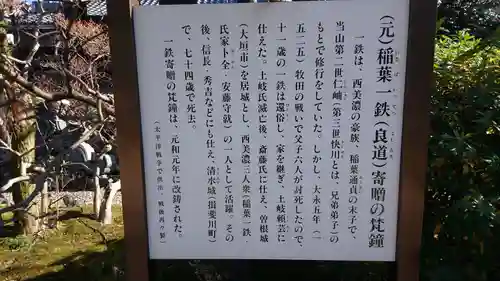 (元)稲葉一鉄(良道)寄贈の梵鐘
一鉄は、西美濃の豪族、稲葉通貞の末子で、
当山第二世仁岫(第三世快川とは、兄弟弟子)の
もとで修行をしていた。しかし、大永五年(一
五二五)牧田の戦いで父子六人が討死したので、
十一歳の一鉄は還俗し、家を継ぎ、土岐頼芸に
仕えた。土岐氏滅亡後、斎藤氏に仕え、曽根城
(大垣市)を居城とし、西美濃三人衆(稲葉一鉄・
氏家卜全・安藤守就)の一人として活躍。その
後、信長・秀吉などにも仕え、清水城(揖斐川町)
で、七十四歳で死去。
一鉄寄贈の梵鐘は、元和元年に改鋳された。
(太平洋戦争で供出、戦後再々製)